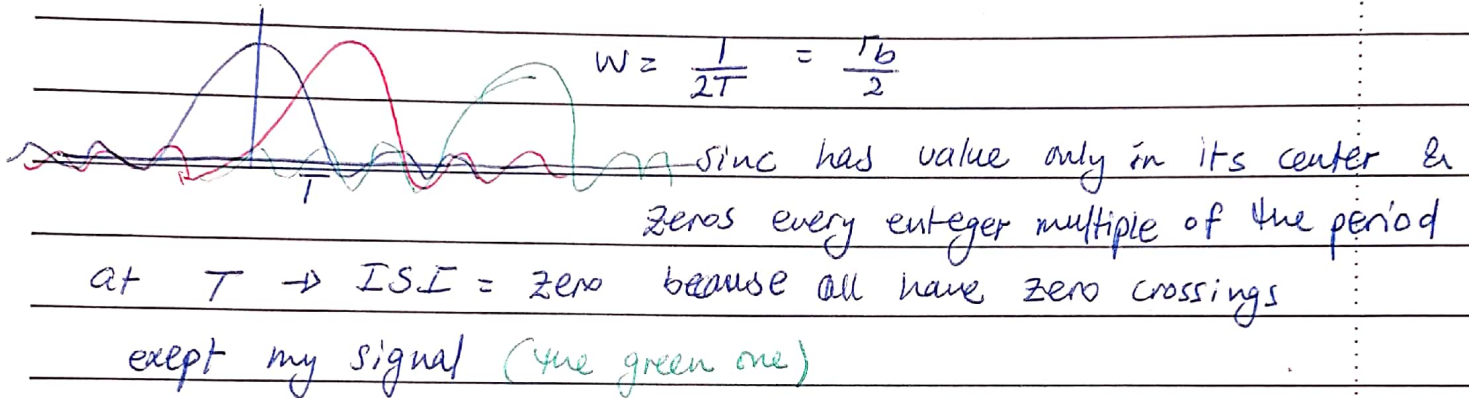 W = 1/2T = rb/2
sinc has value only in its center &
zeros every enteger multiple of the period
T
at T → ISI = zero because all have zero crossings
exept my signal (the green one)